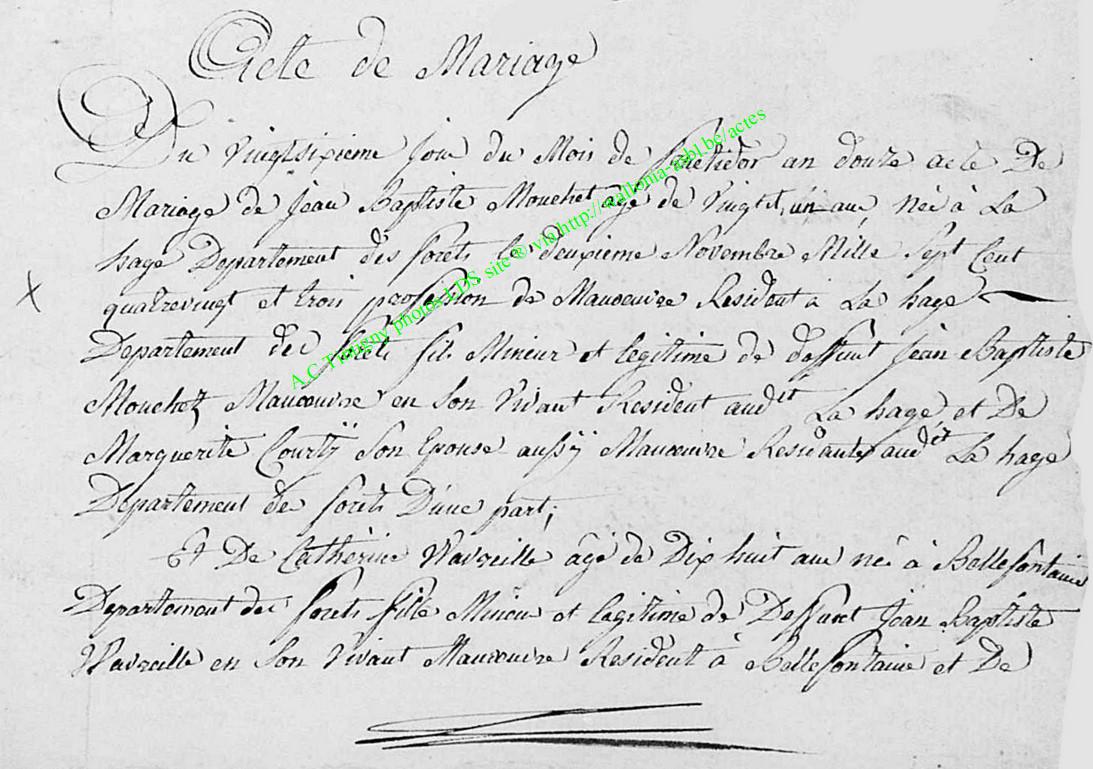 Acte de Mariage
Du Vingtsixieme jour du Mois de an douze acte De
Mariage de Jean Baptiste Mouchet agé de Vingt un ans, Née à La
hage Departement des forets Le deuxieme Novembre Mille Sept Cent
quatrevingt et trois profession de Manoeuvre Resident à La hage
Departement des forets fils Mineur et legitime de deffunt Jean Baptiste
Mouchet Manoeuvre en Son Vivant Resident audit La hage, et De
Marguerite Courtÿ Son Epouse aussÿ Manoeuvre Residante audit La hage
Departement de forets D'une part;
Et De Catherine Wavreille âgé de Dix huit ans né à Bellefontaine
Departement des forets fille Mineur et Legitime de Deffunt Jean Baptiste
Wavreille en Son Vivant Manoeuvre Resident à Bellefontaine et De
A.C. Tintigny photos LDS site ® via http://wallonia-asbl.be/actes